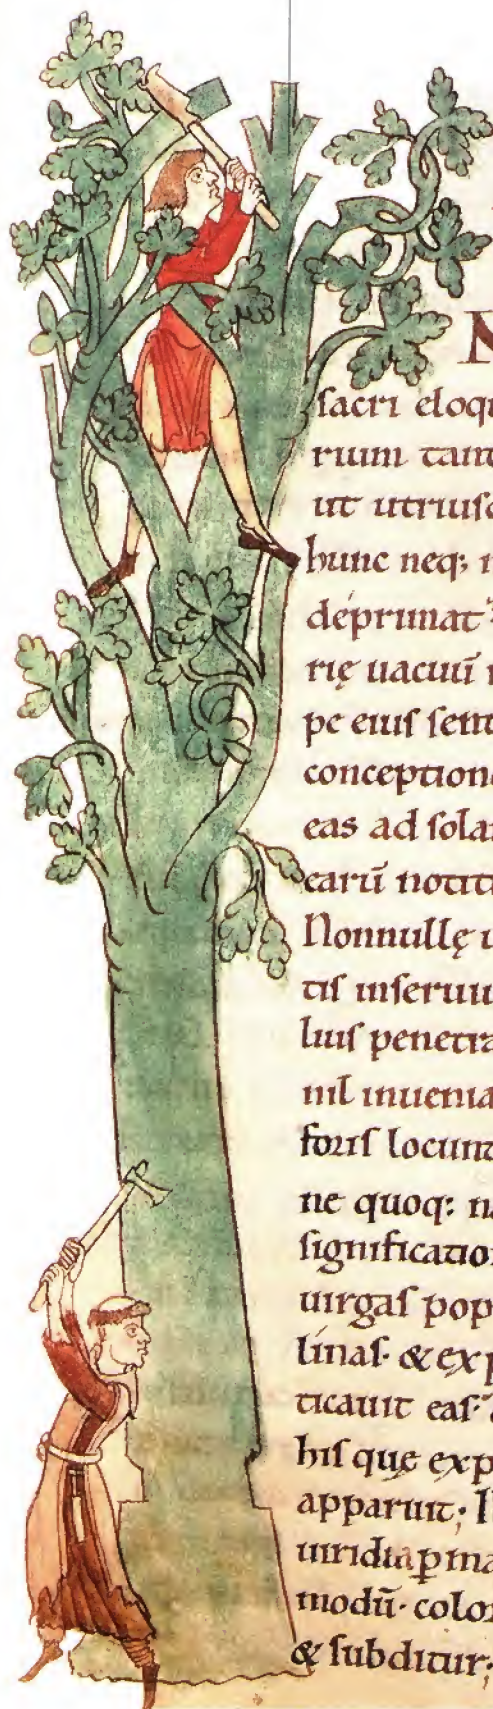 N
sacri eloq
rium tant
ut utriusq
hunc neq; n
deprimat
rię uacuū
pe eius sent
conception
eas ad sola
earū notiti
Nonnullę u
tis inseruiu
lius penetra
nil inuenia
foris locunt
ne quoq; n
significatio
uirgas pop
linas. & exp
ticauit eas.
his quę exp
apparuit; I
uiridia p̄ma
modū. color
& subditur;